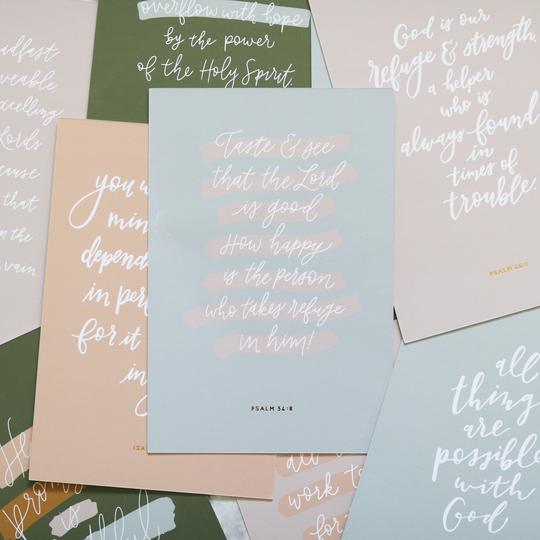 overflow with hope
by the power
of the Holy Spirit.
God is our
refuge & strength,
a helper
who is
always found
in
times of
trouble.
PSALM 46:1
that
in the
vain
you
depend
in
for it
in
Taste & see
that the Lord
is good
How happy
is the person
who takes refuge
in him!
PSALM 34:8
all
thing
are
possible
with
God
is
all
work
for